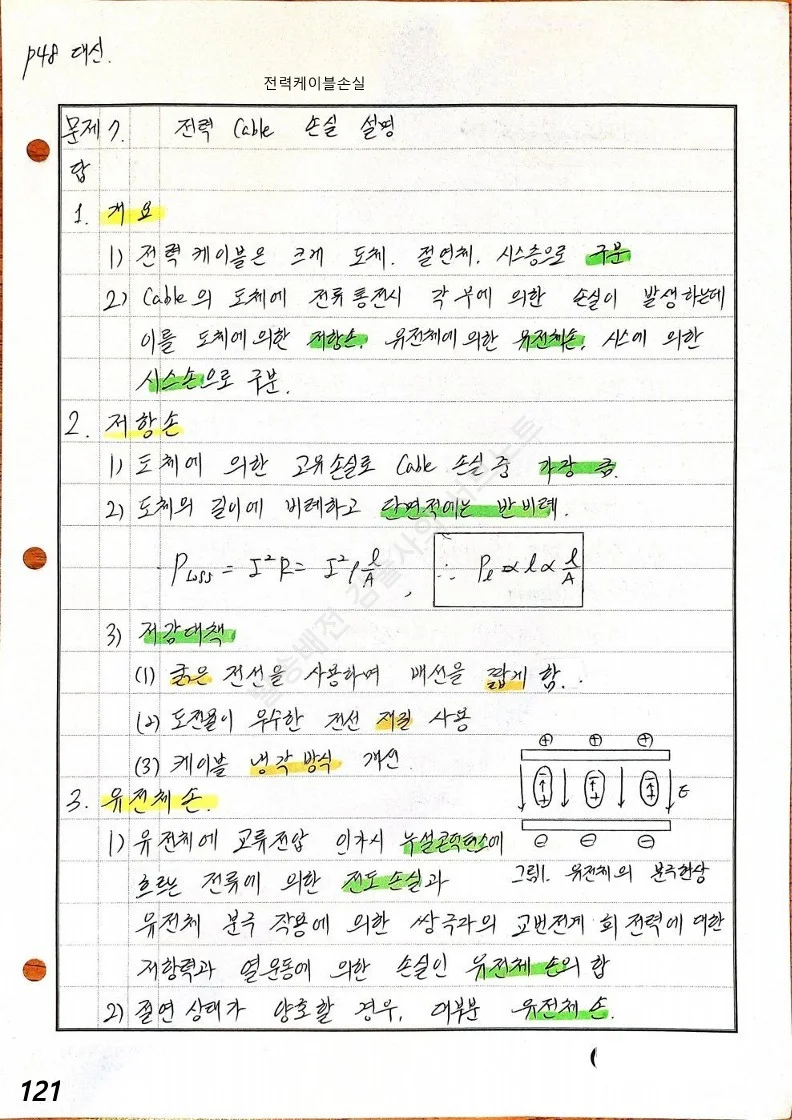 p48 대신.
전력케이블손실
문제 7. 전력 Cable 손실 설명
답
1. 개요
1) 전력 케이블은 크게 도체. 절연체. 시스층으로 구분
2) Cable의 도체에 전류 통전시 각 부에 의한 손실이 발생하는데
이를 도체에 의한 저항손, 유전체에 의한 유전체손, 시스에 의한
시스손으로 구분.
2. 저항손
1) 도체에 의한 고유손실로 Cable 손실 중 가장 큼.
2) 도체의 길이에 비례하고 단면적에는 반비례.
P_Loss = I²R = I²ρ l/A , ∴ P_l ∝ l ∝ l/A
3) 저감대책
(1) 굵은 전선을 사용하며 배선을 짧게 함.
(2) 도전율이 우수한 전선 재질 사용
(3) 케이블 냉각 방식 개선.
3. 유전체 손.
1) 유전체에 교류전압 인가시 누설콘덕턴스에
흐르는 전류에 의한 전도 손실과
유전체 분극 작용에 의한 쌍극자의 교번전계 회전력에 대한
저항력과 열운동에 의한 손실인 유전체 손의 합
2) 절연 상태가 양호할 경우, 대부분 유전체 손.
⊕ ⊕ ⊕
E
⊖ ⊖ ⊖
그림1. 유전체의 분극현상
121